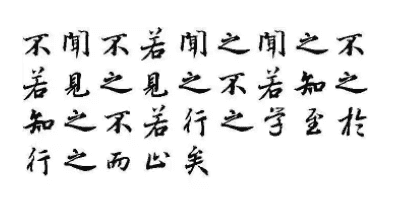 不闻不若闻之闻之不
若见之见之不若知之
知之不若行之学至於
行之而止矣